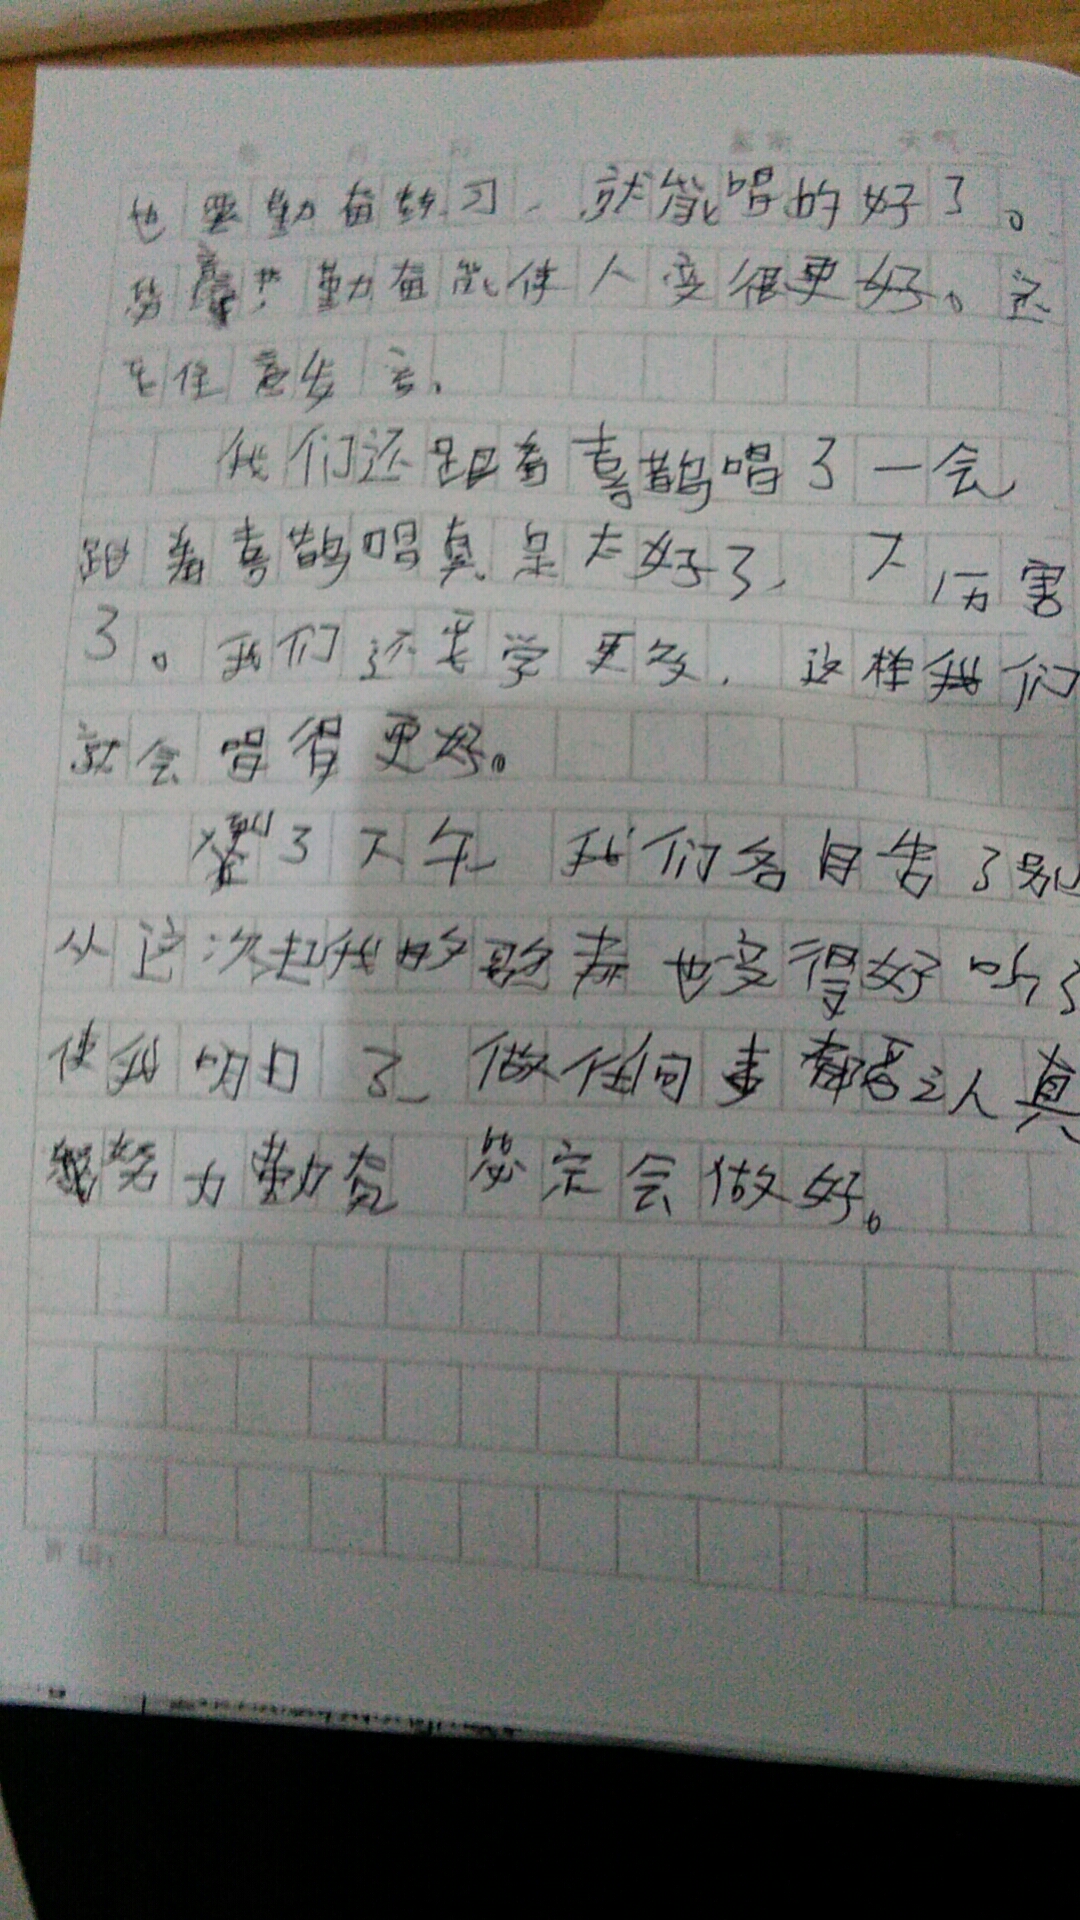 星期 天气
也要勤奋练习，就能唱的好了。
勤奋能使人变很更好。还
注意发言。
我们还跟着喜鹊唱了一会
跟着喜鹊唱真是太好了，太厉害
了。我们还要学更多，这样我们
就会唱得更好。
到了下午 我们各自告了别
从这次起我的歌声也变得好听了
使我明白了 做任何事都要认真
努力勤奋 必定会做好。